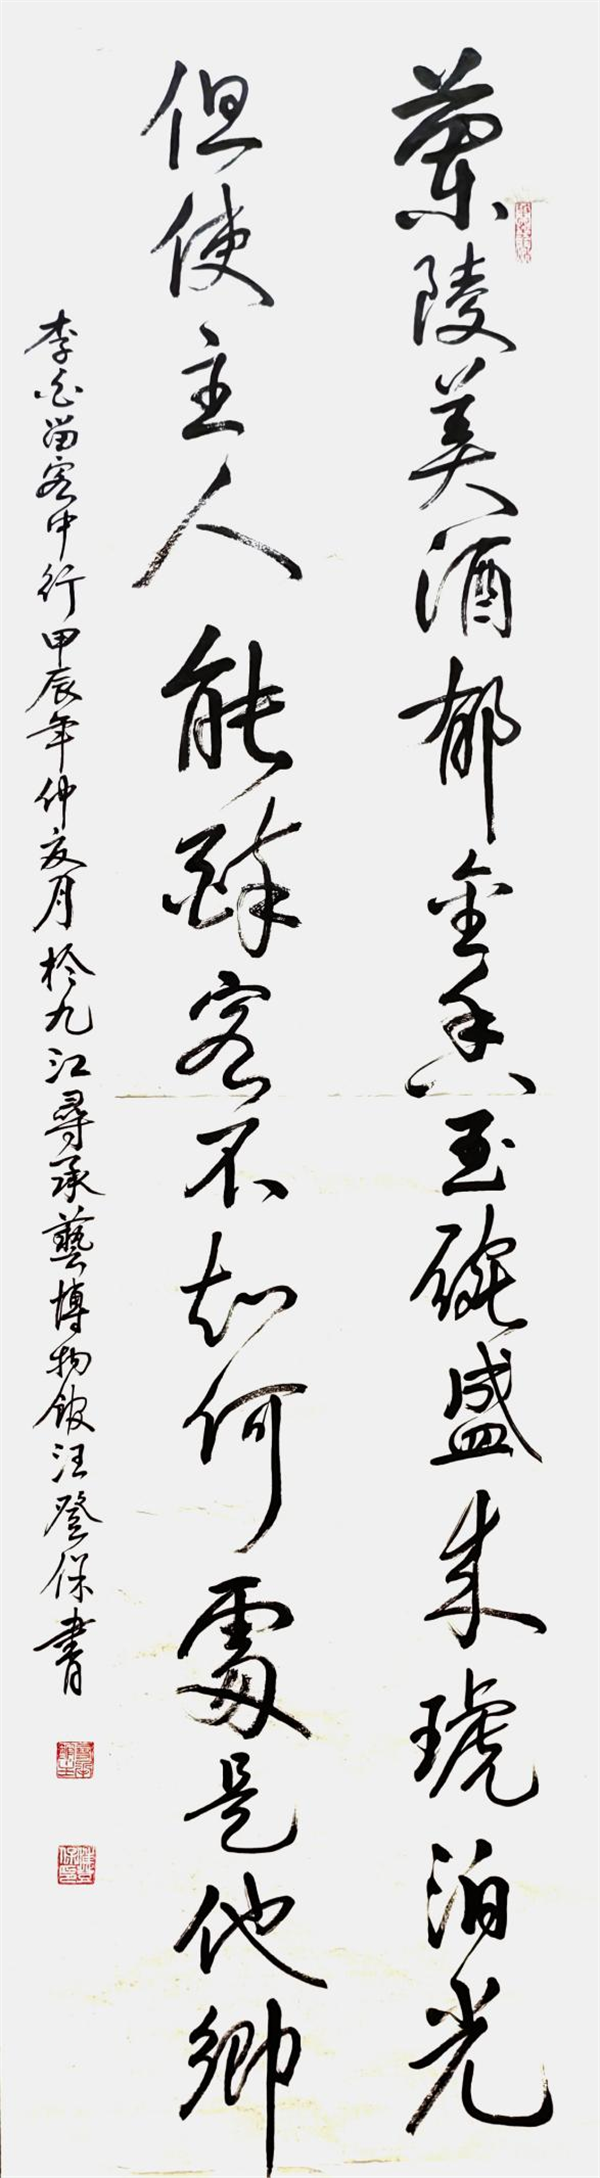 蘭陵美酒郁金香玉碗盛来琥泊光
但使主人能醉客不知何處是他鄉
李白留客中行甲辰年仲夏月於九江尋承藝博物館汪登保書